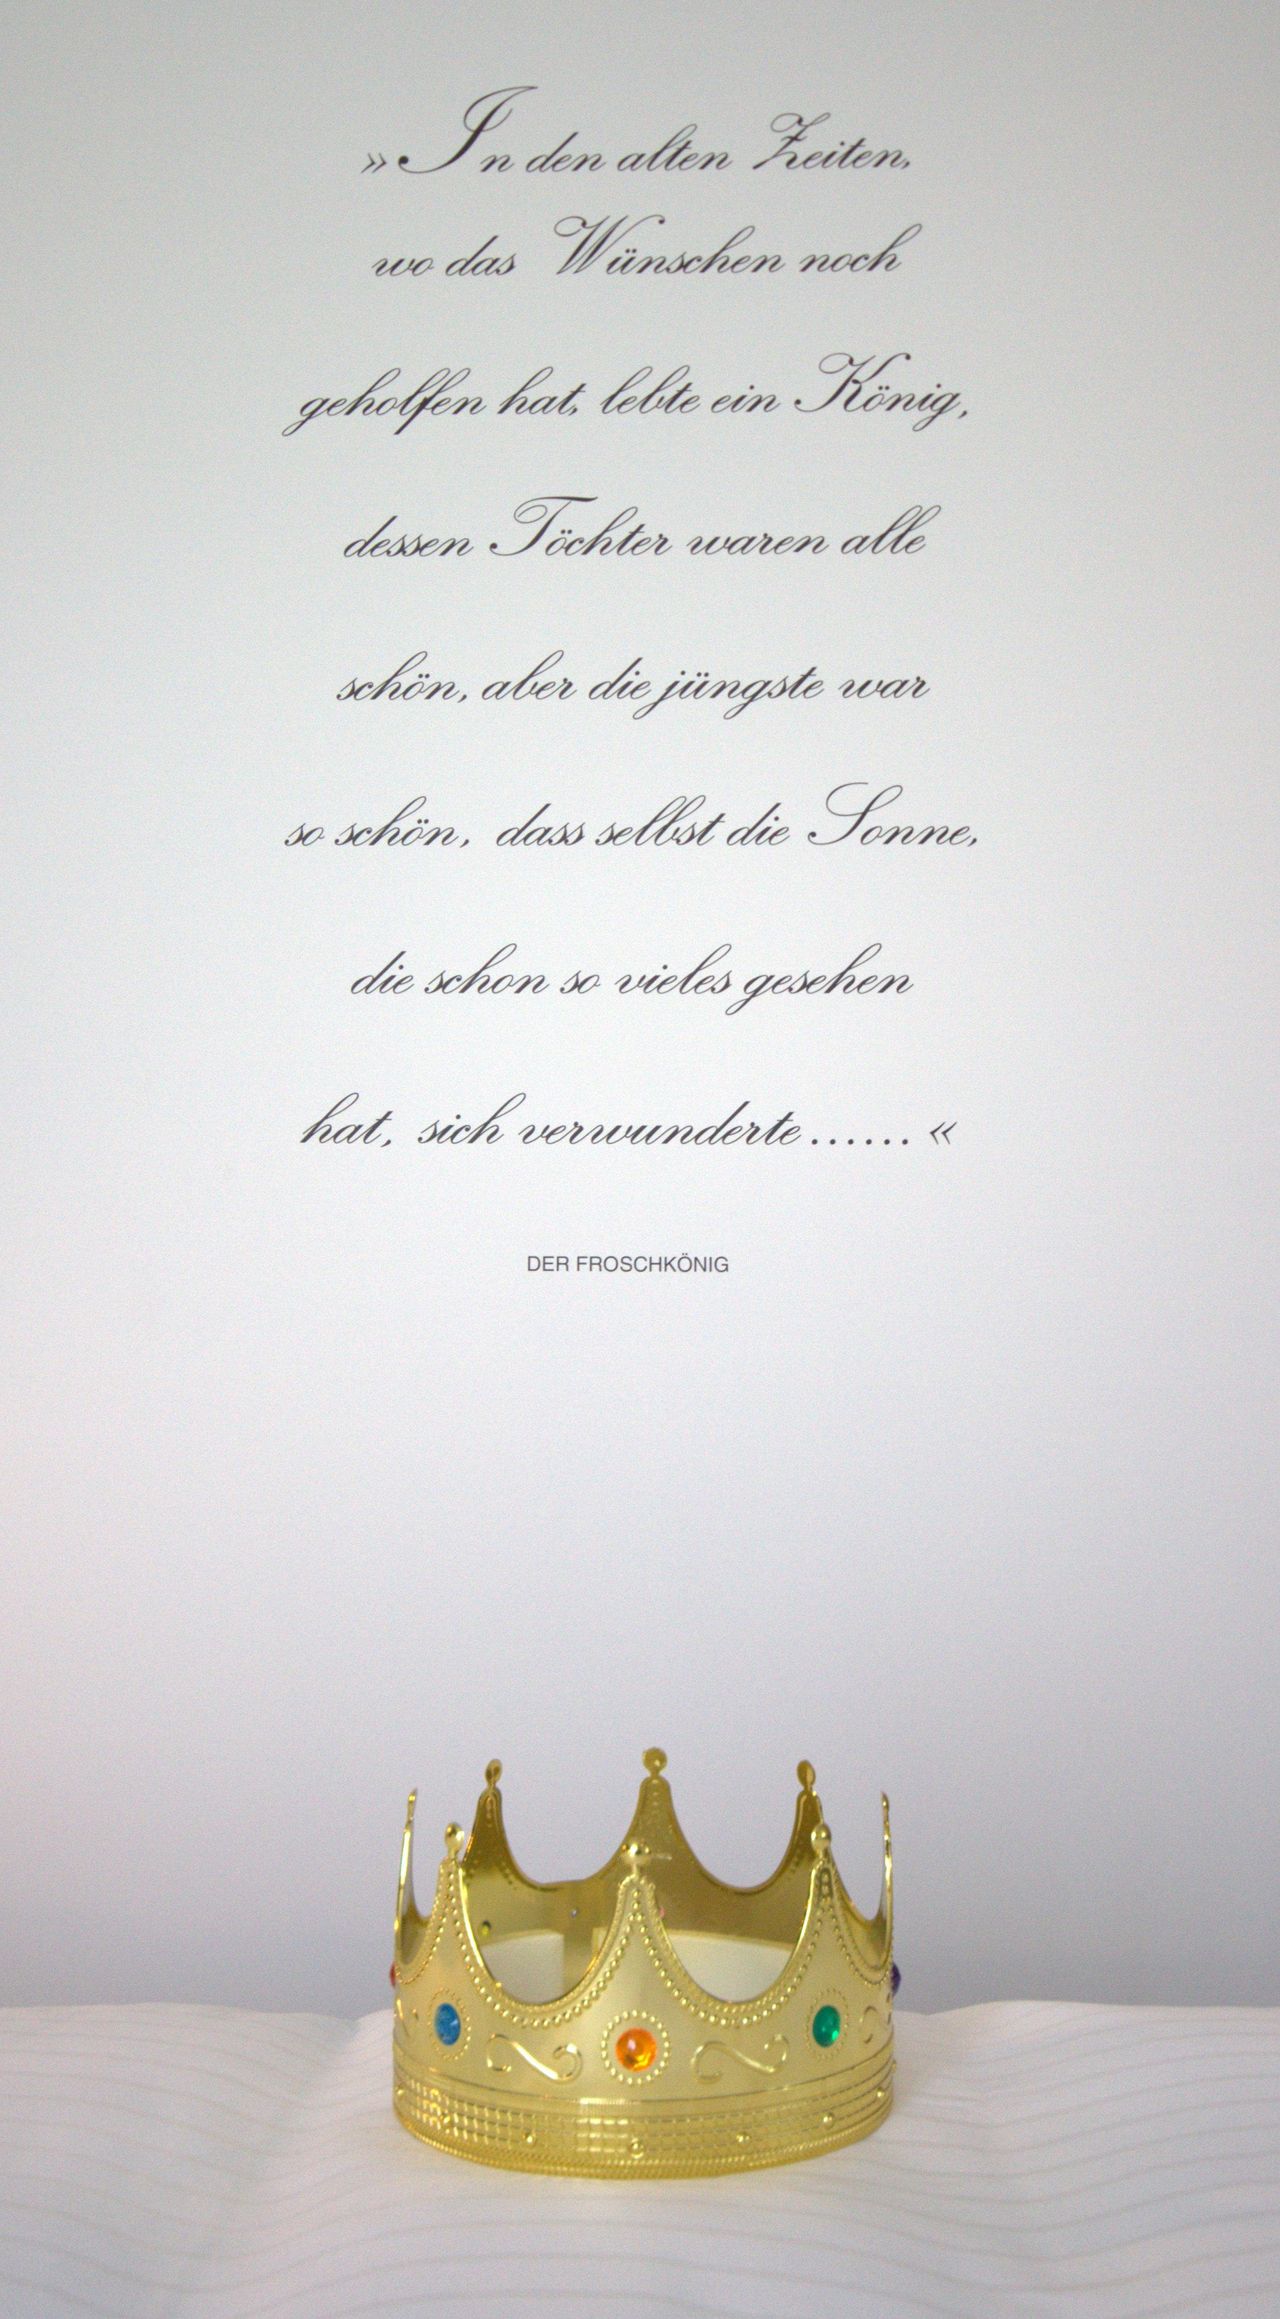 »In den alten Zeiten,
wo das Wünschen noch
geholfen hat, lebte ein König,
dessen Töchter waren alle
schön, aber die jüngste war
so schön, dass selbst die Sonne,
die schon so vieles gesehen
hat, sich verwunderte...... «
DER FROSCHKÖNIG